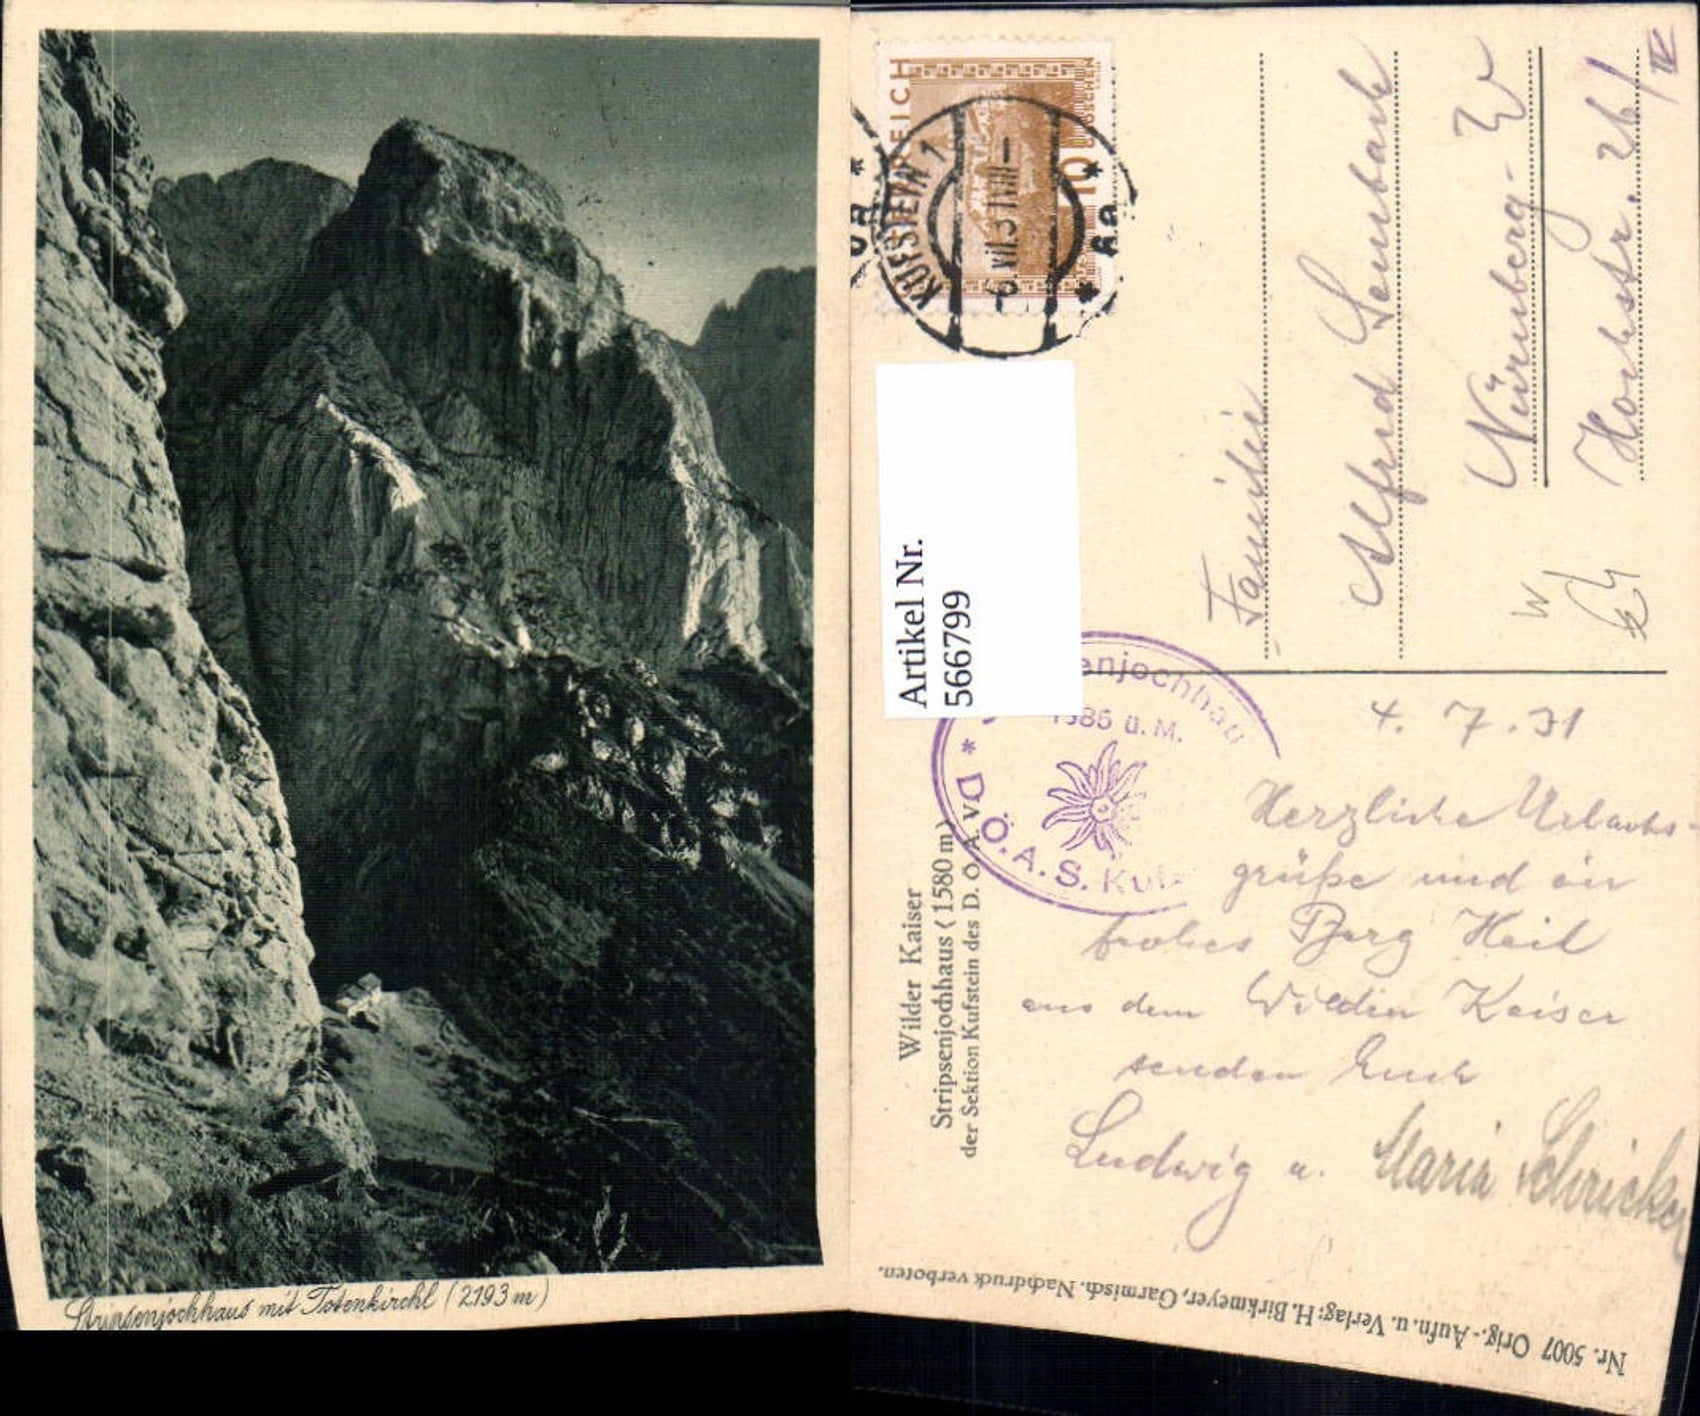 Stripsenjochhaus mit Totenkirchl (2193 m)
ÖSTERREICH
10 GROSCHEN
KUFSTEIN 1
* 6a *
Artikel Nr.
566799
Familie
Alfred
Nürnberg-W
Hochstr. 26/IV
W
enjochhau
1586 ü. M.
* D. Ö. A. S. Kufs
Wilder Kaiser
Stripsenjochhaus (1580 m)
der Sektion Kufstein des D. Ö. A. V.
4. 7. 31
Herzliche Urlaubs-
grüße und ein
frohes Berg Heil
aus dem Wilden Kaiser
senden Euch
Ludwig u. Maria Schricker
Nr. 5007 Orig.-Aufn. u. Verlag: H. Birkmeyer, Garmisch. Nachdruck verboten.